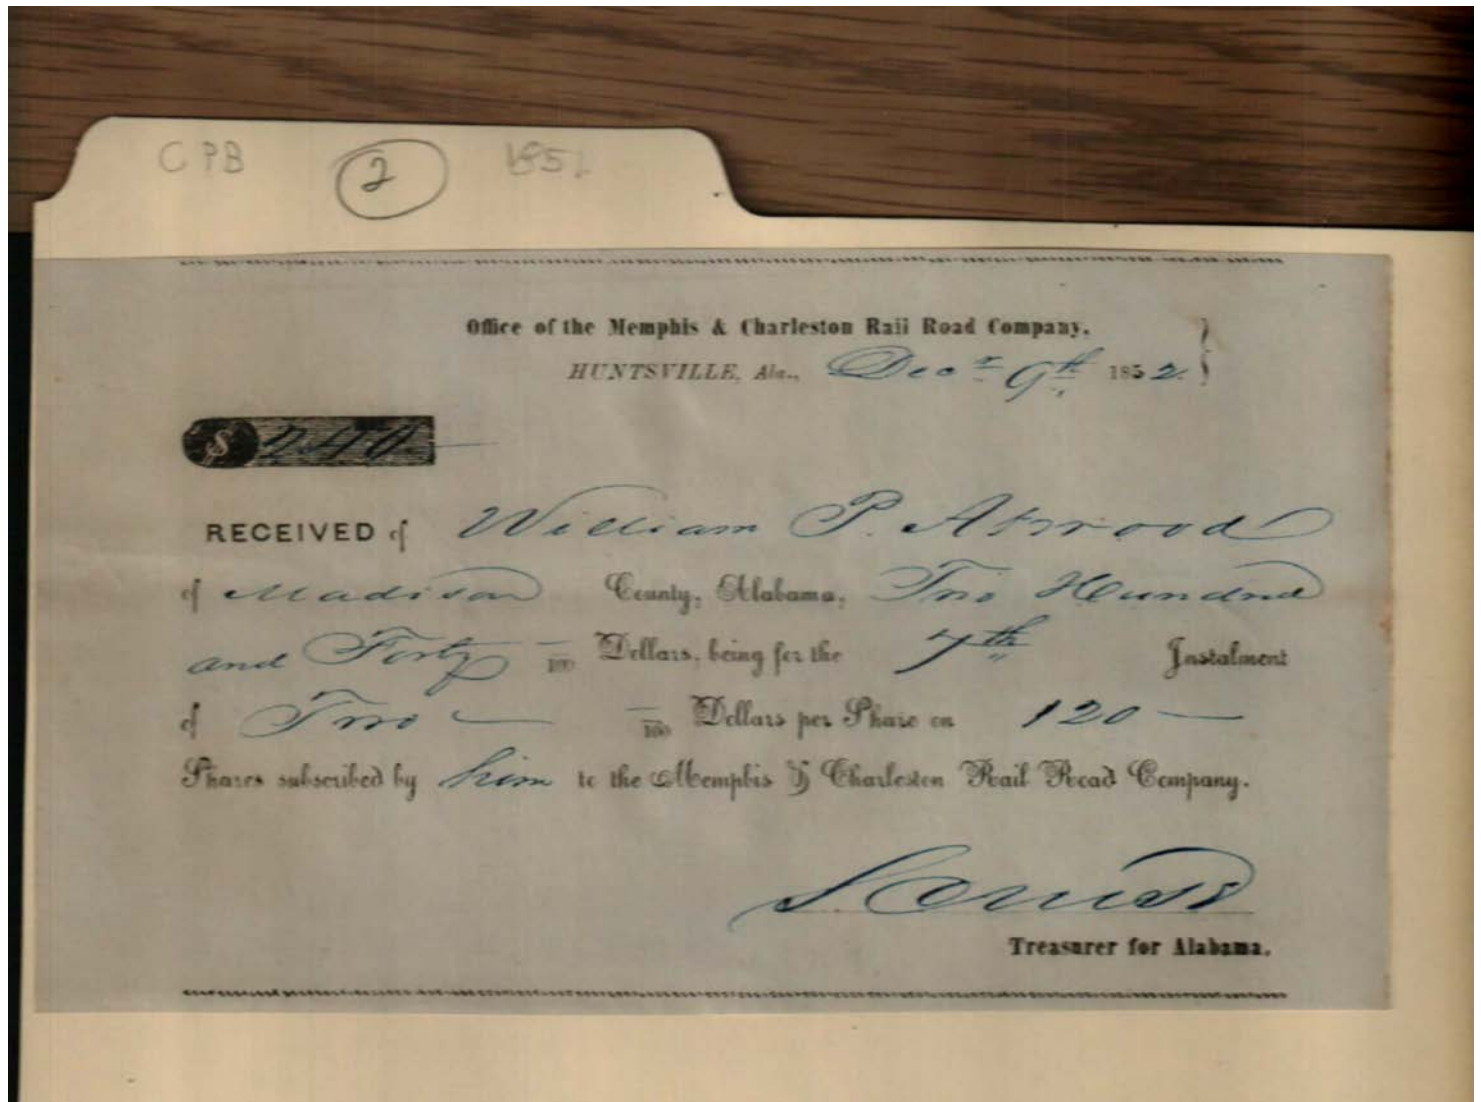 CPB 2 1852
Office of the Memphis & Charleston Rail Road Company,
HUNTSVILLE, Ala., Decr 9th 1852.
$240
RECEIVED of William P. Atwood
of Madison County, Alabama, Two Hundred
and Forty —/100 Dollars, being for the 7th Instalment
of Two — —/100 Dollars per Share on 120 —
Shares subscribed by him to the Memphis & Charleston Rail Road Company.
Treasurer for Alabama.